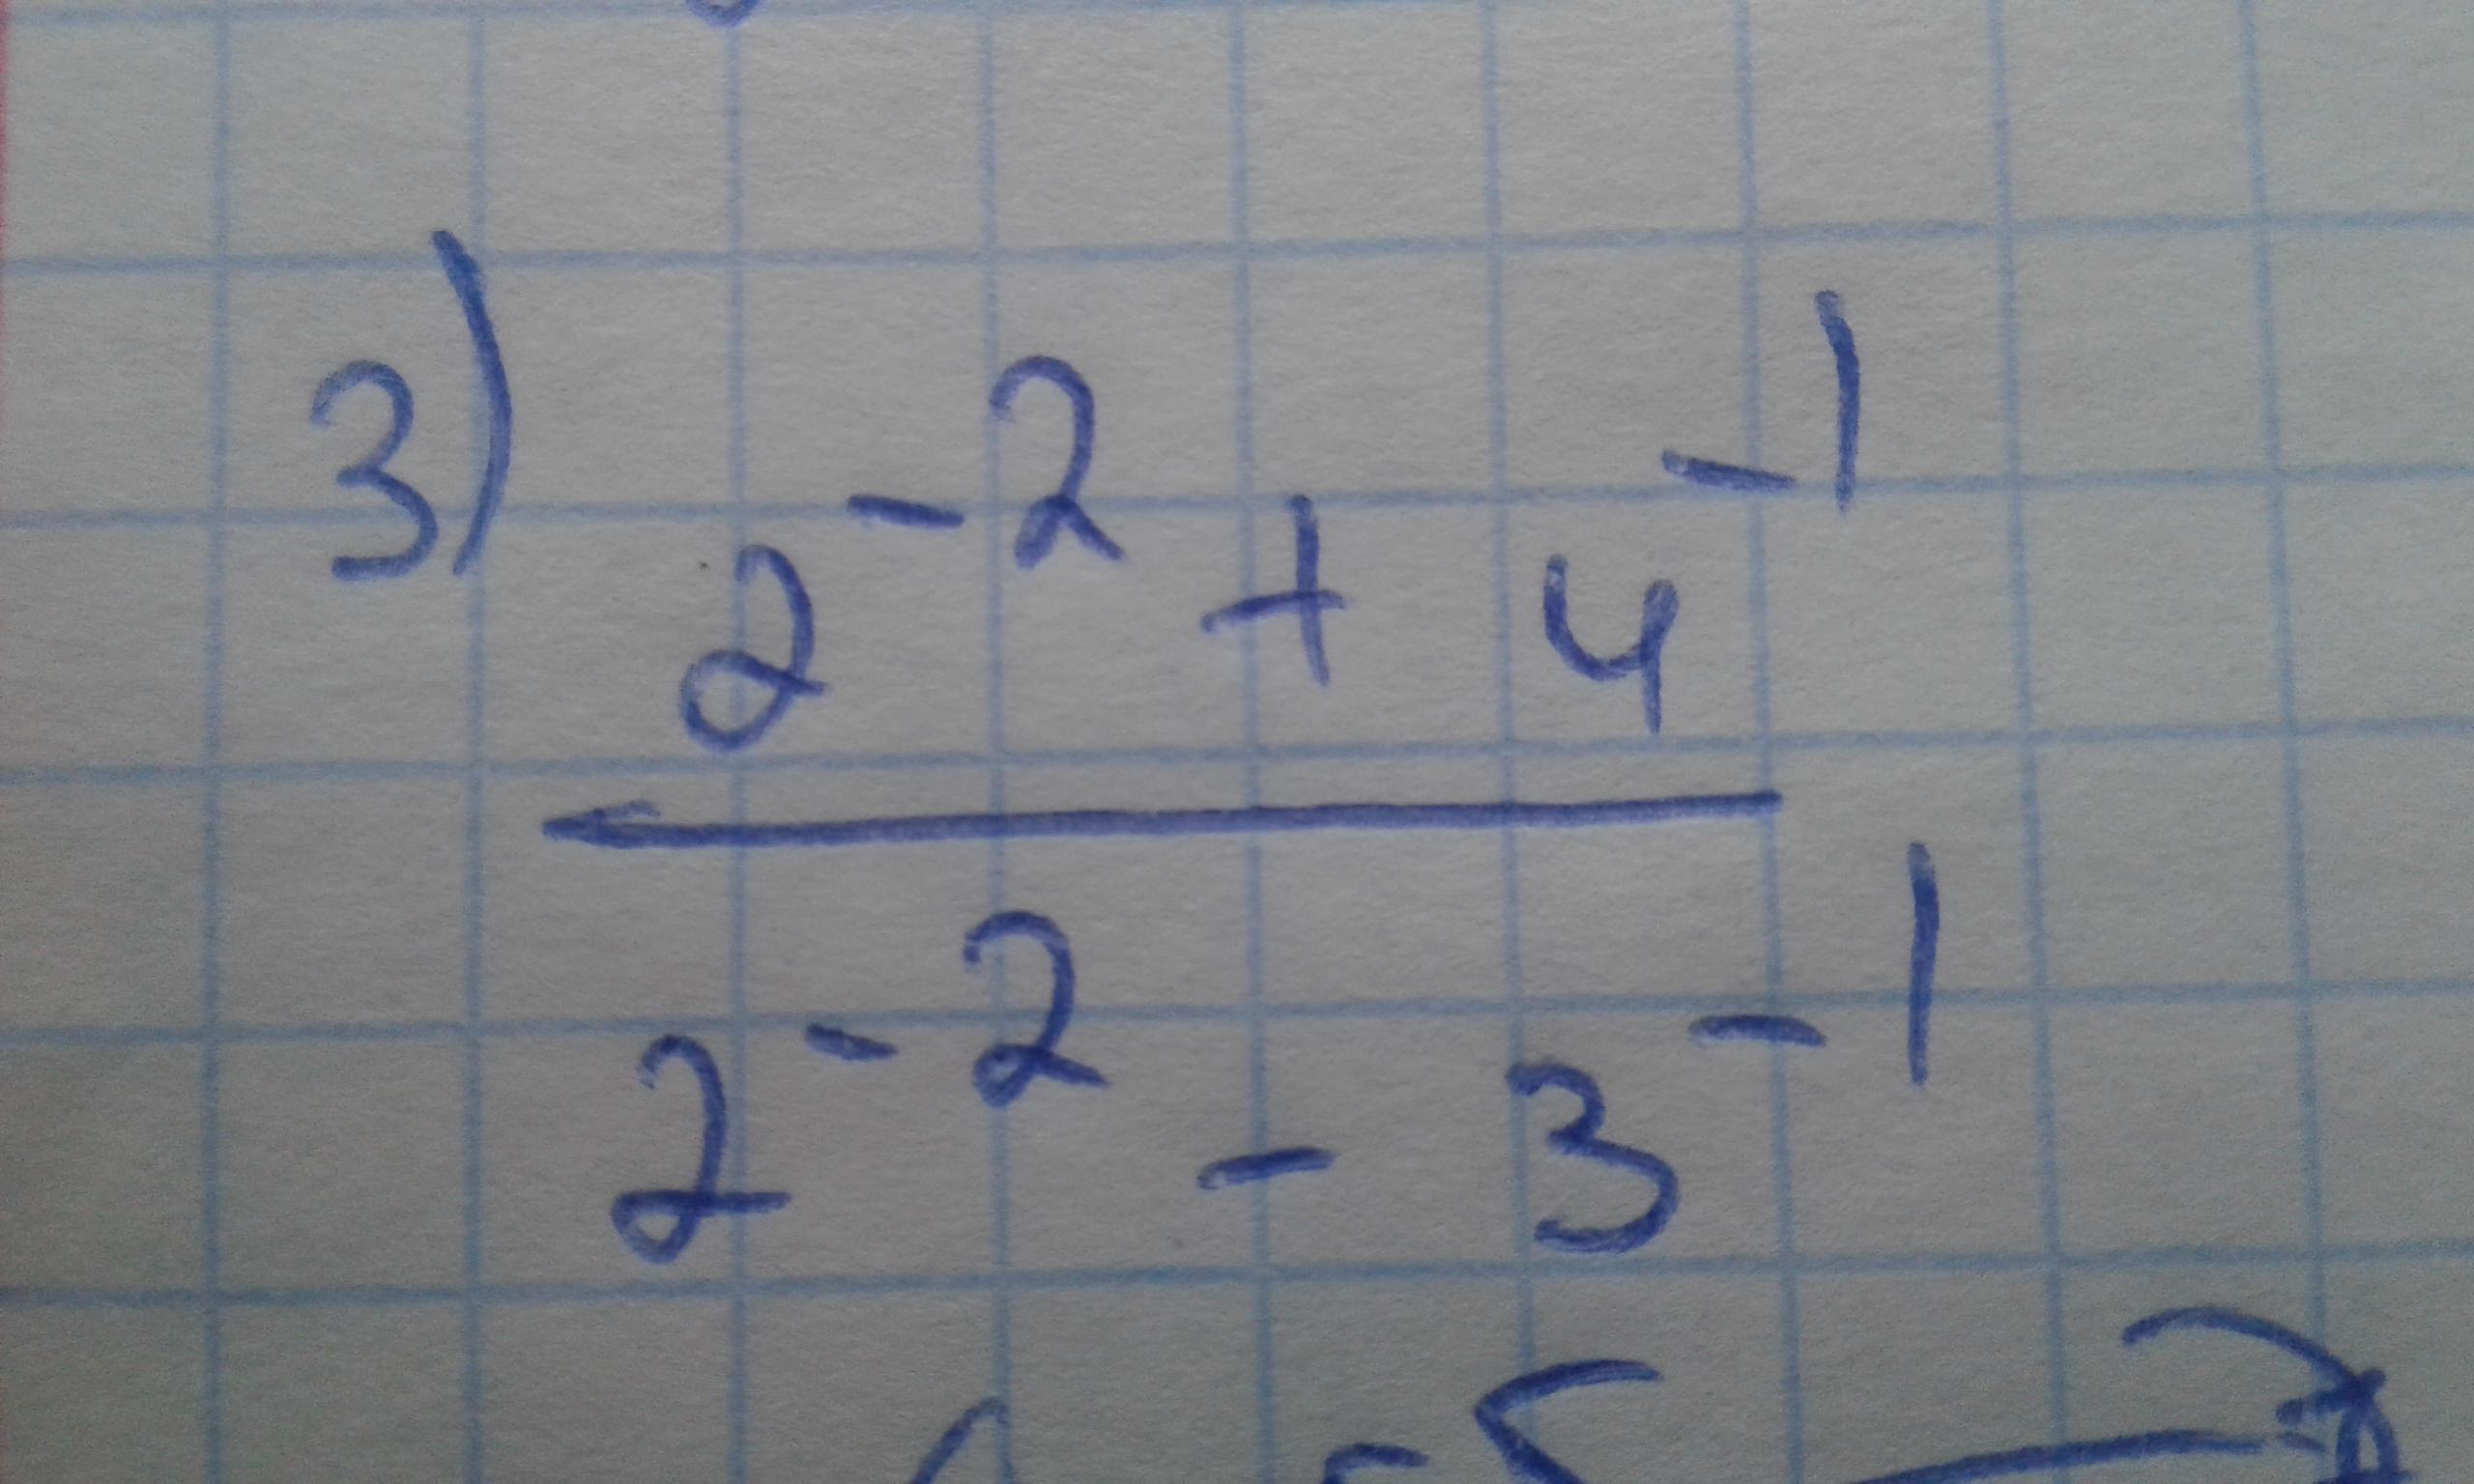 3) 2⁻² + 4⁻¹
2⁻² - 3⁻¹